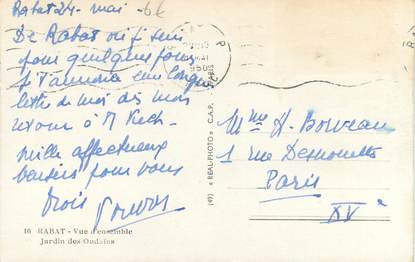 Rabat 24 - mai - 66
De Rabat où je suis
pour quelques jours
je t'annonce une longue
lettre de moi dès mon
retour à M
mille affectueux
baisers pour vous
trois
16 RABAT - Vue d'ensemble
Jardin des Oudaïas
(49) « REAL-PHOTO » C.A.P.
Mme H. Bouveau
1 rue Desnouettes
Paris
XVe